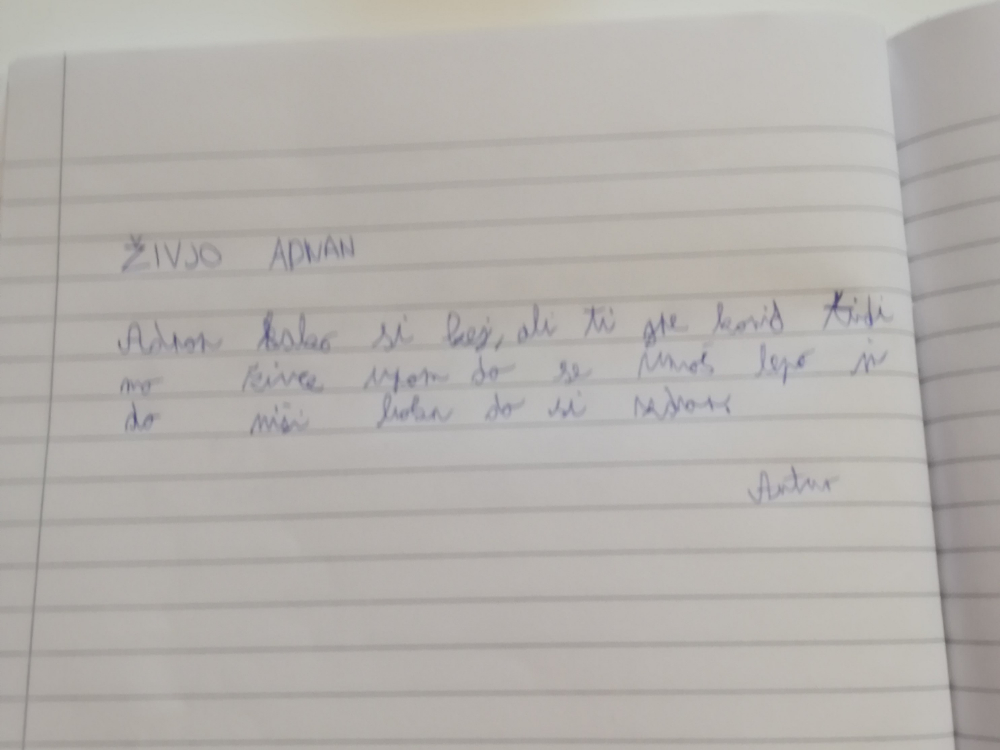 ŽIVJO ADNAN
Adnan kako si kej, ali ti gre kovid tidi
na živce upam da se imaš lepo in
da nisi bolan da si zdrav
Artur